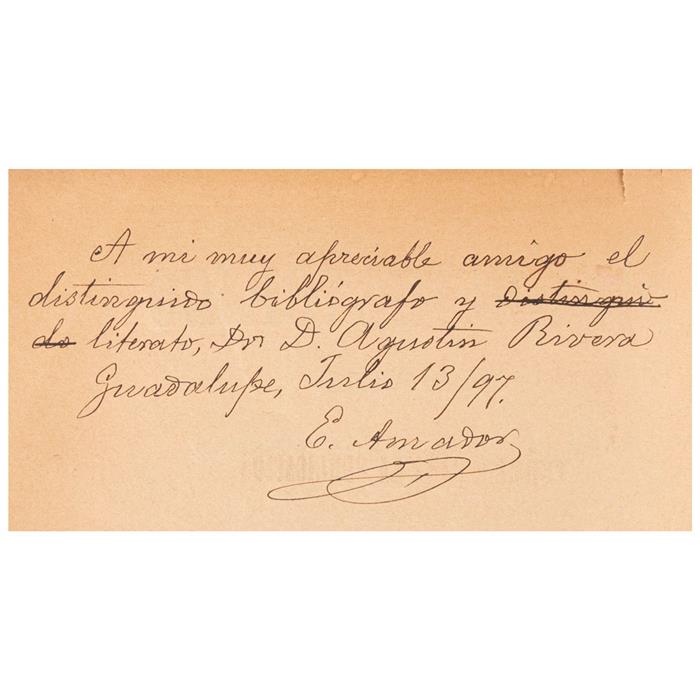 A mi muy apreciable amigo el
distinguido bibliógrafo y distingui
do literato, Dr. D. Agustin Rivera
Guadalupe, Julio 13/97.
E. Amador